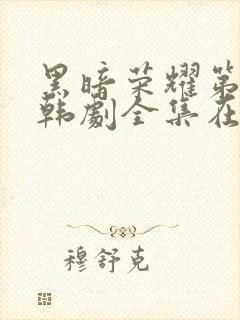 黑暗荣耀第
韩劇全集在
穆舒克